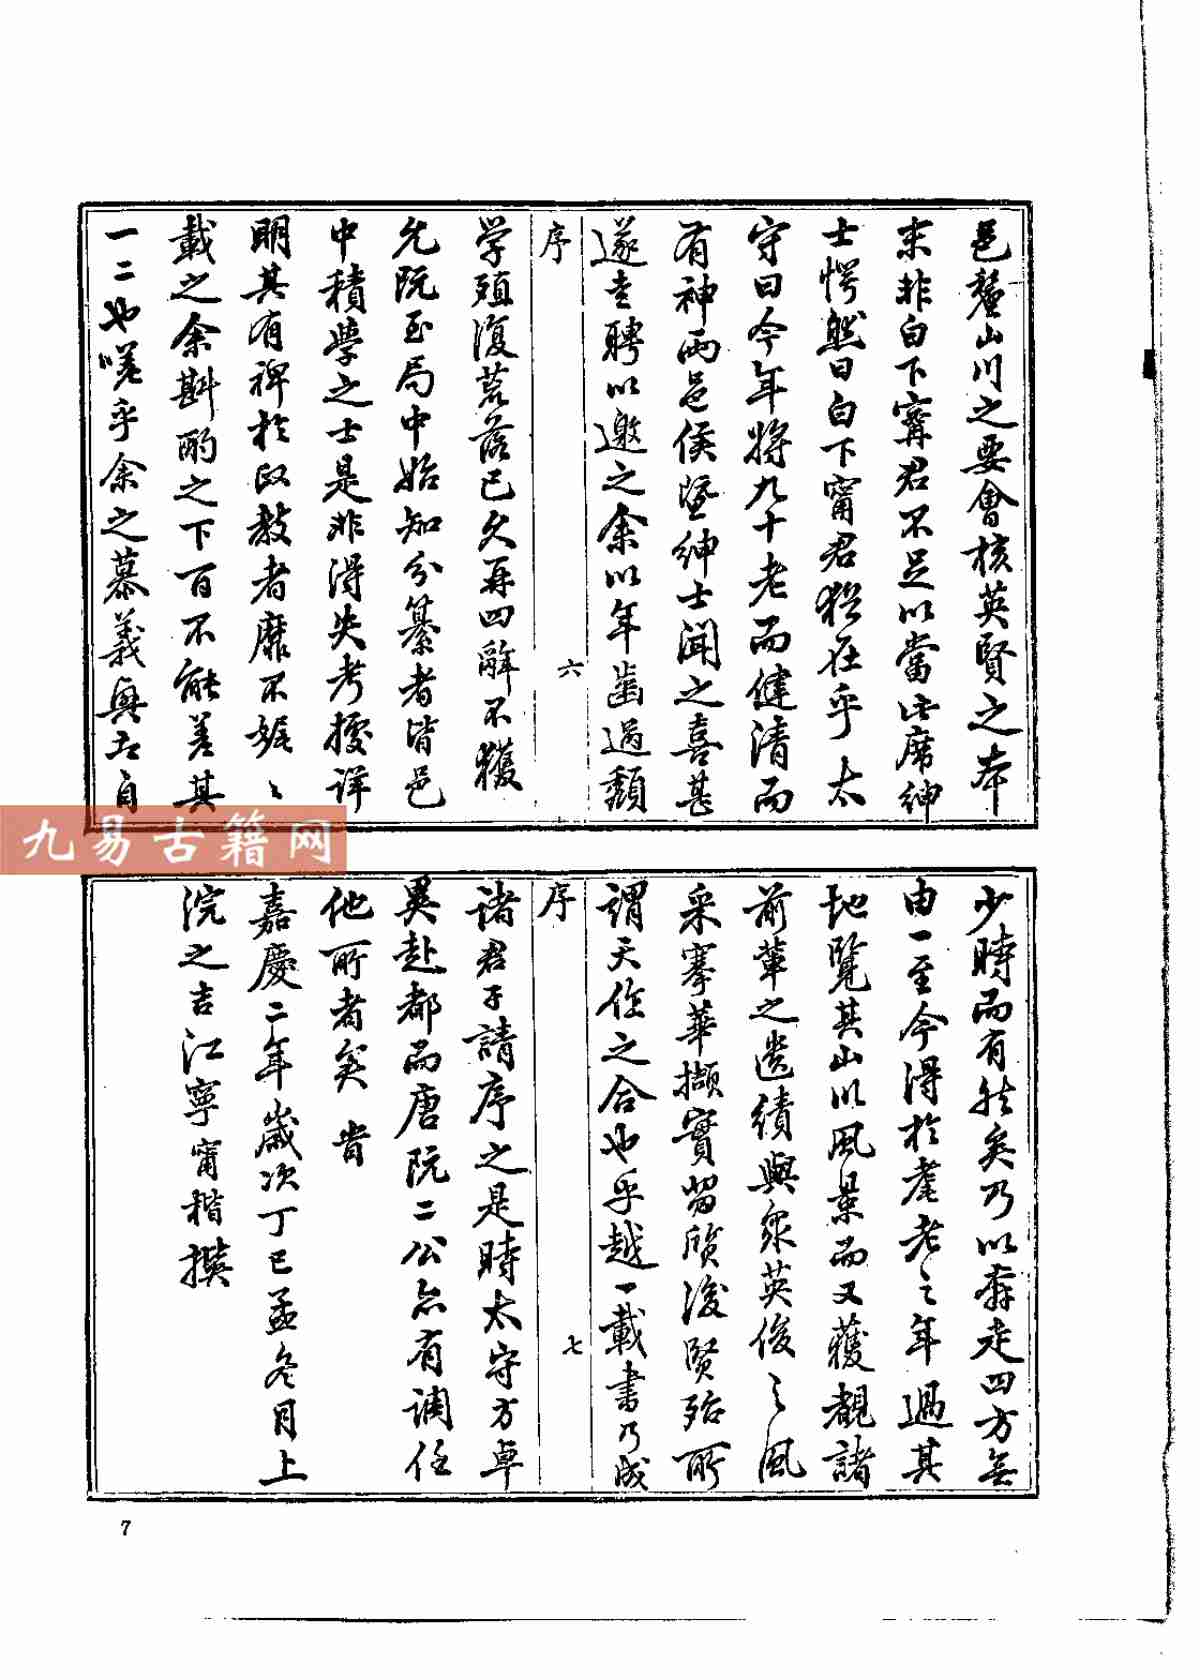 邑釐山川之要會核英賢之本
末非白下甯君不足以當此席紳
士愕然曰白下甯君猶在乎太
守曰今年將九十老而健清而
有神兩邑侯暨紳士聞之喜甚
遂走聘以邀之余以年齒過頹
序
六
学殖復荒落已久再四辭不獲
允既至局中始知分纂者皆邑
中積學之士是非得失考據详
明其有裨於政教者靡不娓〻
載之余斟酌之下百不能差其
一二也嗟乎余之慕義興古自
少時而有然矣乃以奔走四方無
由一至今得於耄老之年過其
地覽其山川風景而又獲覩諸
前輩之遺績與衆英俊之風
采搴華擷實留貽後賢殆所
謂天作之合也乎越一載書乃成
序
七
諸君子請序之是時太守方卓
異赴都而唐阮二公亦有調任
他所者矣 旹
嘉慶二年歲次丁巳孟冬月上
浣之吉江寧甯楷撰
7
九易古籍网